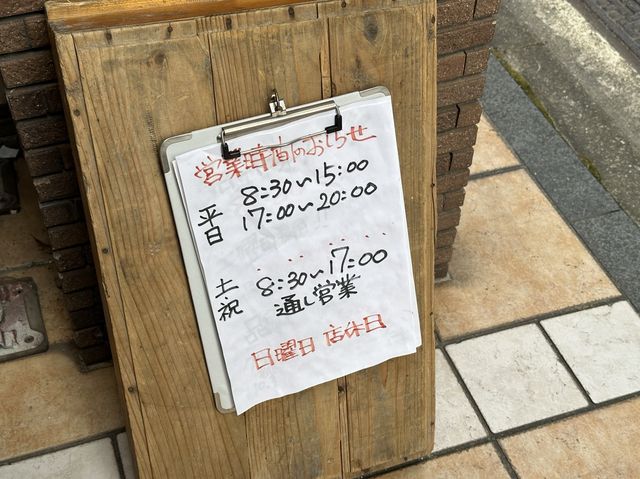 営業時間のおしらせ
平日 8:30～15:00
17:00～20:00
土祝 8:30～17:00
通し営業
日曜日 店休日